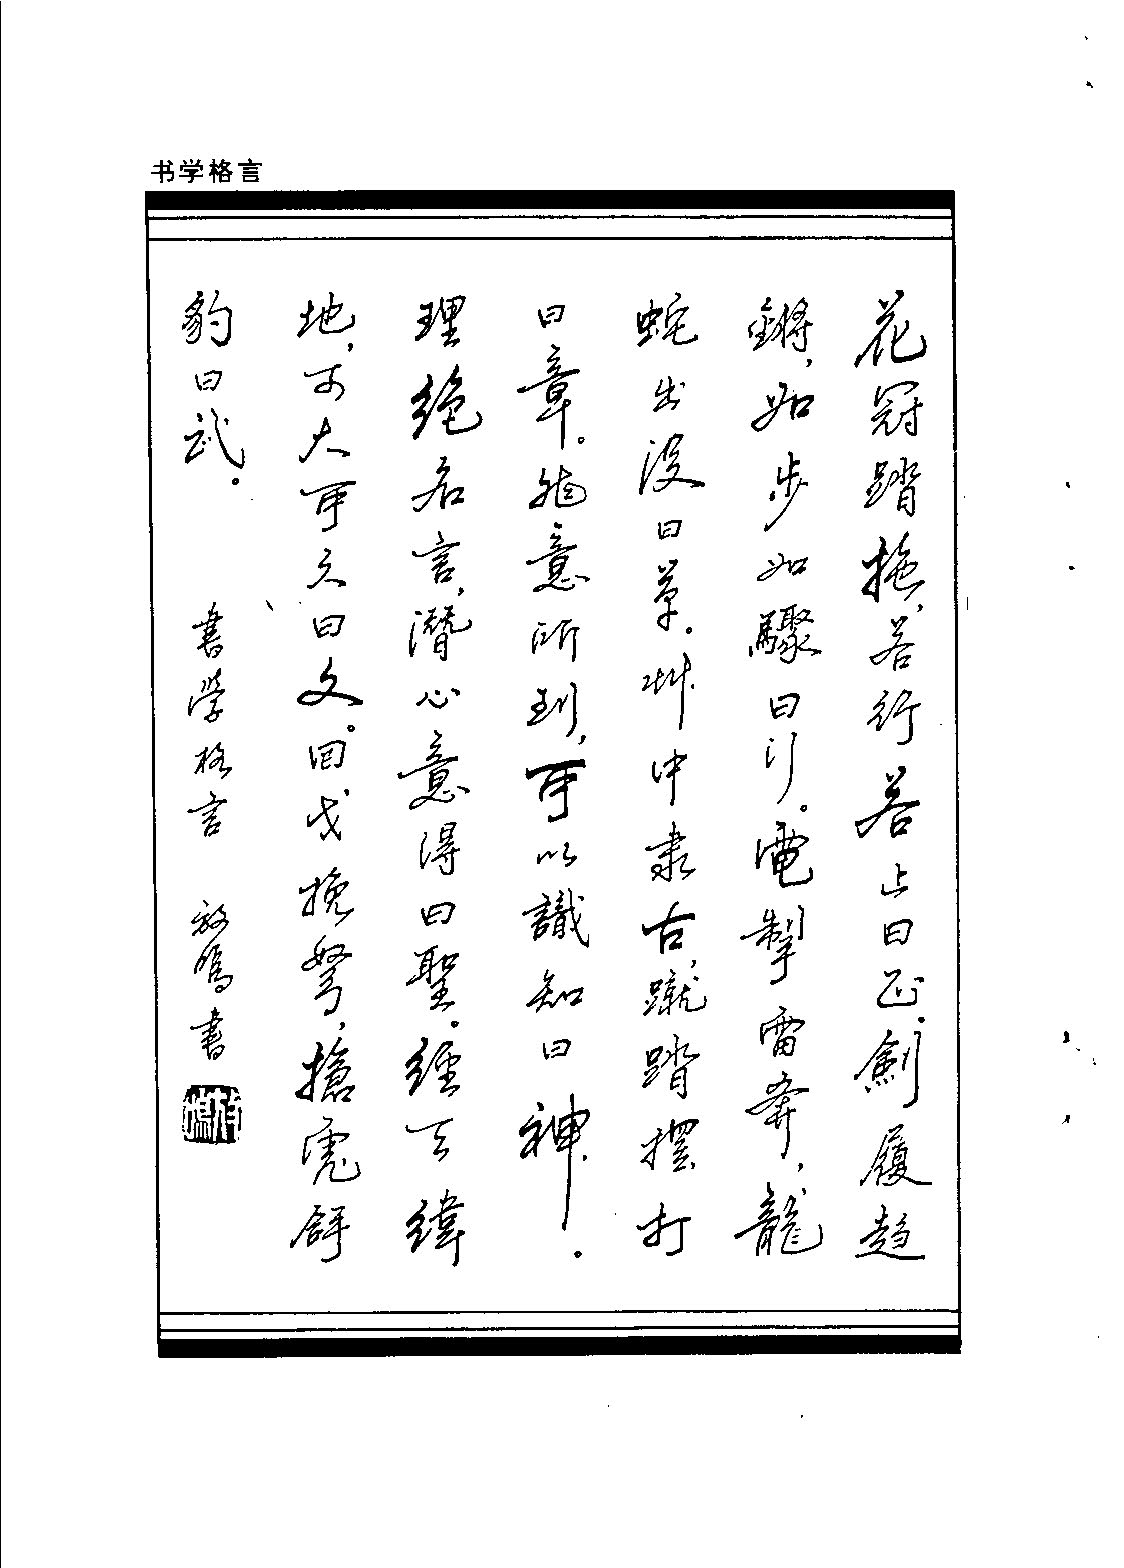 书学格言
花冠踏拖，若行若止曰正。劍履趋
鏘，如步如驟曰行。電掣雷奔，龍
蛇出没曰草。艸中隶古，蹴踏摆打
曰章。能意所到，可以識知曰神。
理绝名言，潛心意得曰聖。经天緯
地，可大可久曰文。回戈挽弩，搶虎
豹曰武。
書学格言 放鳴書